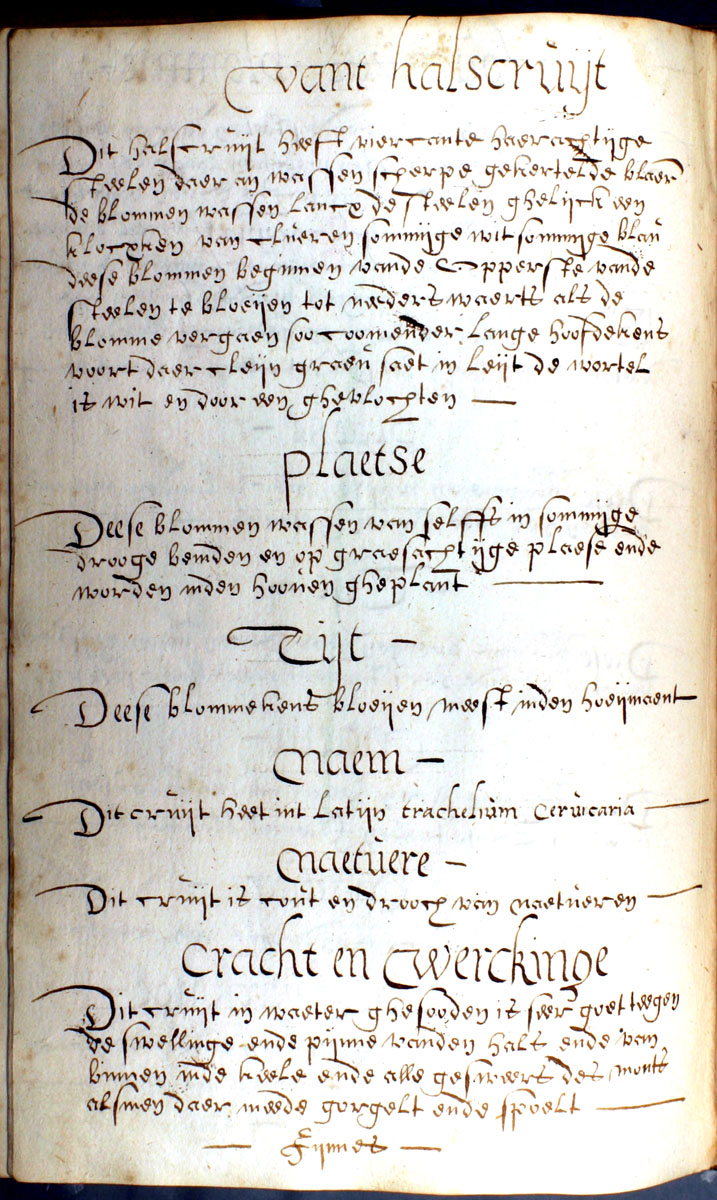 vant halscruijt
Dit halscruijt heeft viercante haerachtijge
steelen daer an wassen scherpe gekertelde blaer
de blommen wassen lancx de steelen ghelijck een
klocxken van clueren sommijge wit sommijge blau
deese blommen beginnen vande opperste vande
steelen te bloeijen tot neederswaerts als de
blomme vergaen soo coomender lange hoofdekens
voort daer cleijn graeu saet in leijt de wortel
is wit en door een ghevlochten
plaetse
Deese blommen wassen van selffs in sommijge
drooge bemden en op graesachtijge plaese ende
worden inden hooven gheplant
Tijt
Deese blommekens bloeijen meest inden hoeijmaent
Naem
Dit cruijt heet int Latijn trachelium Cervicaria
Naetuere
Dit cruijt is cout en drooch van naetueren
Cracht en Werckinge
Dit cruijt in waeter ghesooden is seer goet teegen
de swellinge ende pijnne vanden hals ende van
binnen inde keele ende alle gesweers des monts
alsmen daer meede gorgelt ende spoelt
Fijnnes